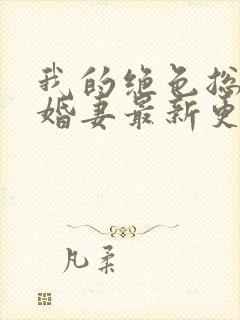 我的绝色总
婚妻最新更
凡柔